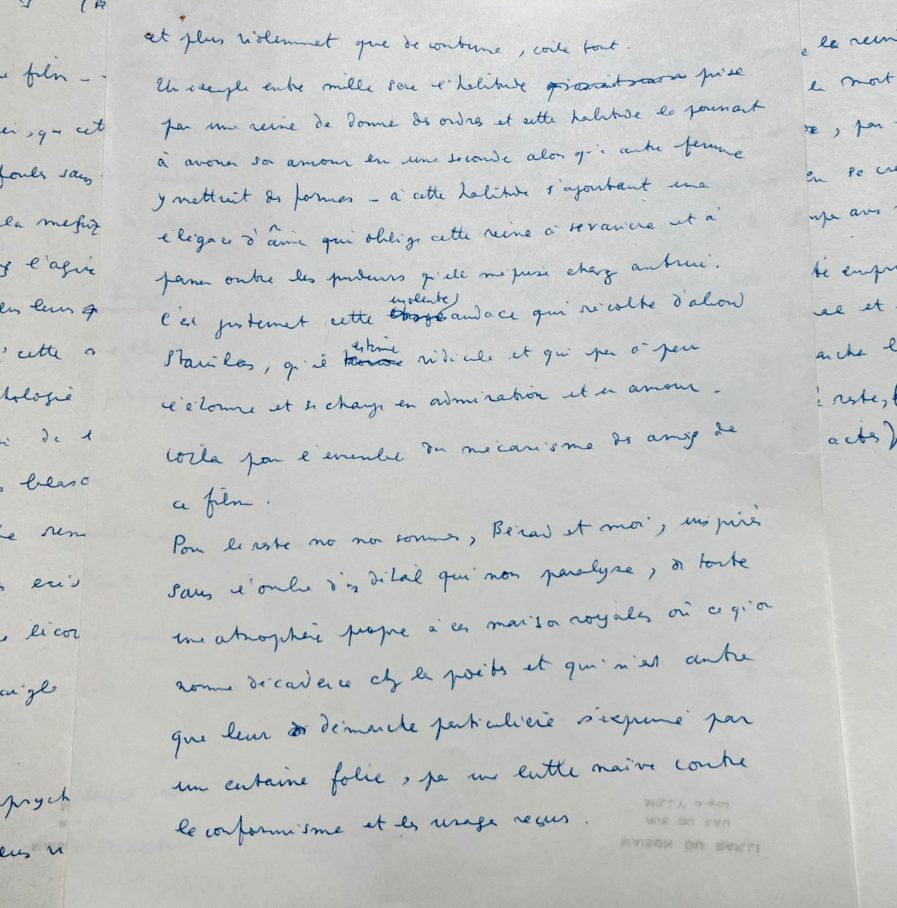 et plus violemment que de coutume, coûte tout.
Un exemple entre mille sera l'habitude prise
par une reine de donner des ordres et cette habitude la poussant
à avouer son amour en une seconde alors qu'une autre femme
y mettrait des formes – à cette habitude s'ajoutant une
élégance d'âme qui oblige cette reine à se vaincre et à
passer outre les pudeurs qu'elle méprise chez autrui.
C'est justement cette insolente audace qui révolte d'abord
Stanislas, qu'il estime ridicule et qui peu à peu
l'étonne et se change en admiration et en amour.
Voilà pour l'ensemble du mécanisme des amours de
ce film.
Pour le reste nous nous sommes, Bérard et moi, inspirés
sans l'ombre d'un détail qui nous paralyse, de toute
une atmosphère propre à ces maisons royales où ce qu'on
nomme décadence chez les poètes et qui n'est autre
que leur démarche particulière s'exprime par
une certaine folie, par une lutte naïve contre
le conformisme et les usages reçus.
MAISON DU BAILLI
RUE DU LAU
MILLY
e film –
ei, que cet
foule sans
la mépriz
l'agir
en leurs
cette
hologie
de l
blaso
licor
aigle
psych
la rein
mort
, par
se cr
té
et
arche
reste,
actes)